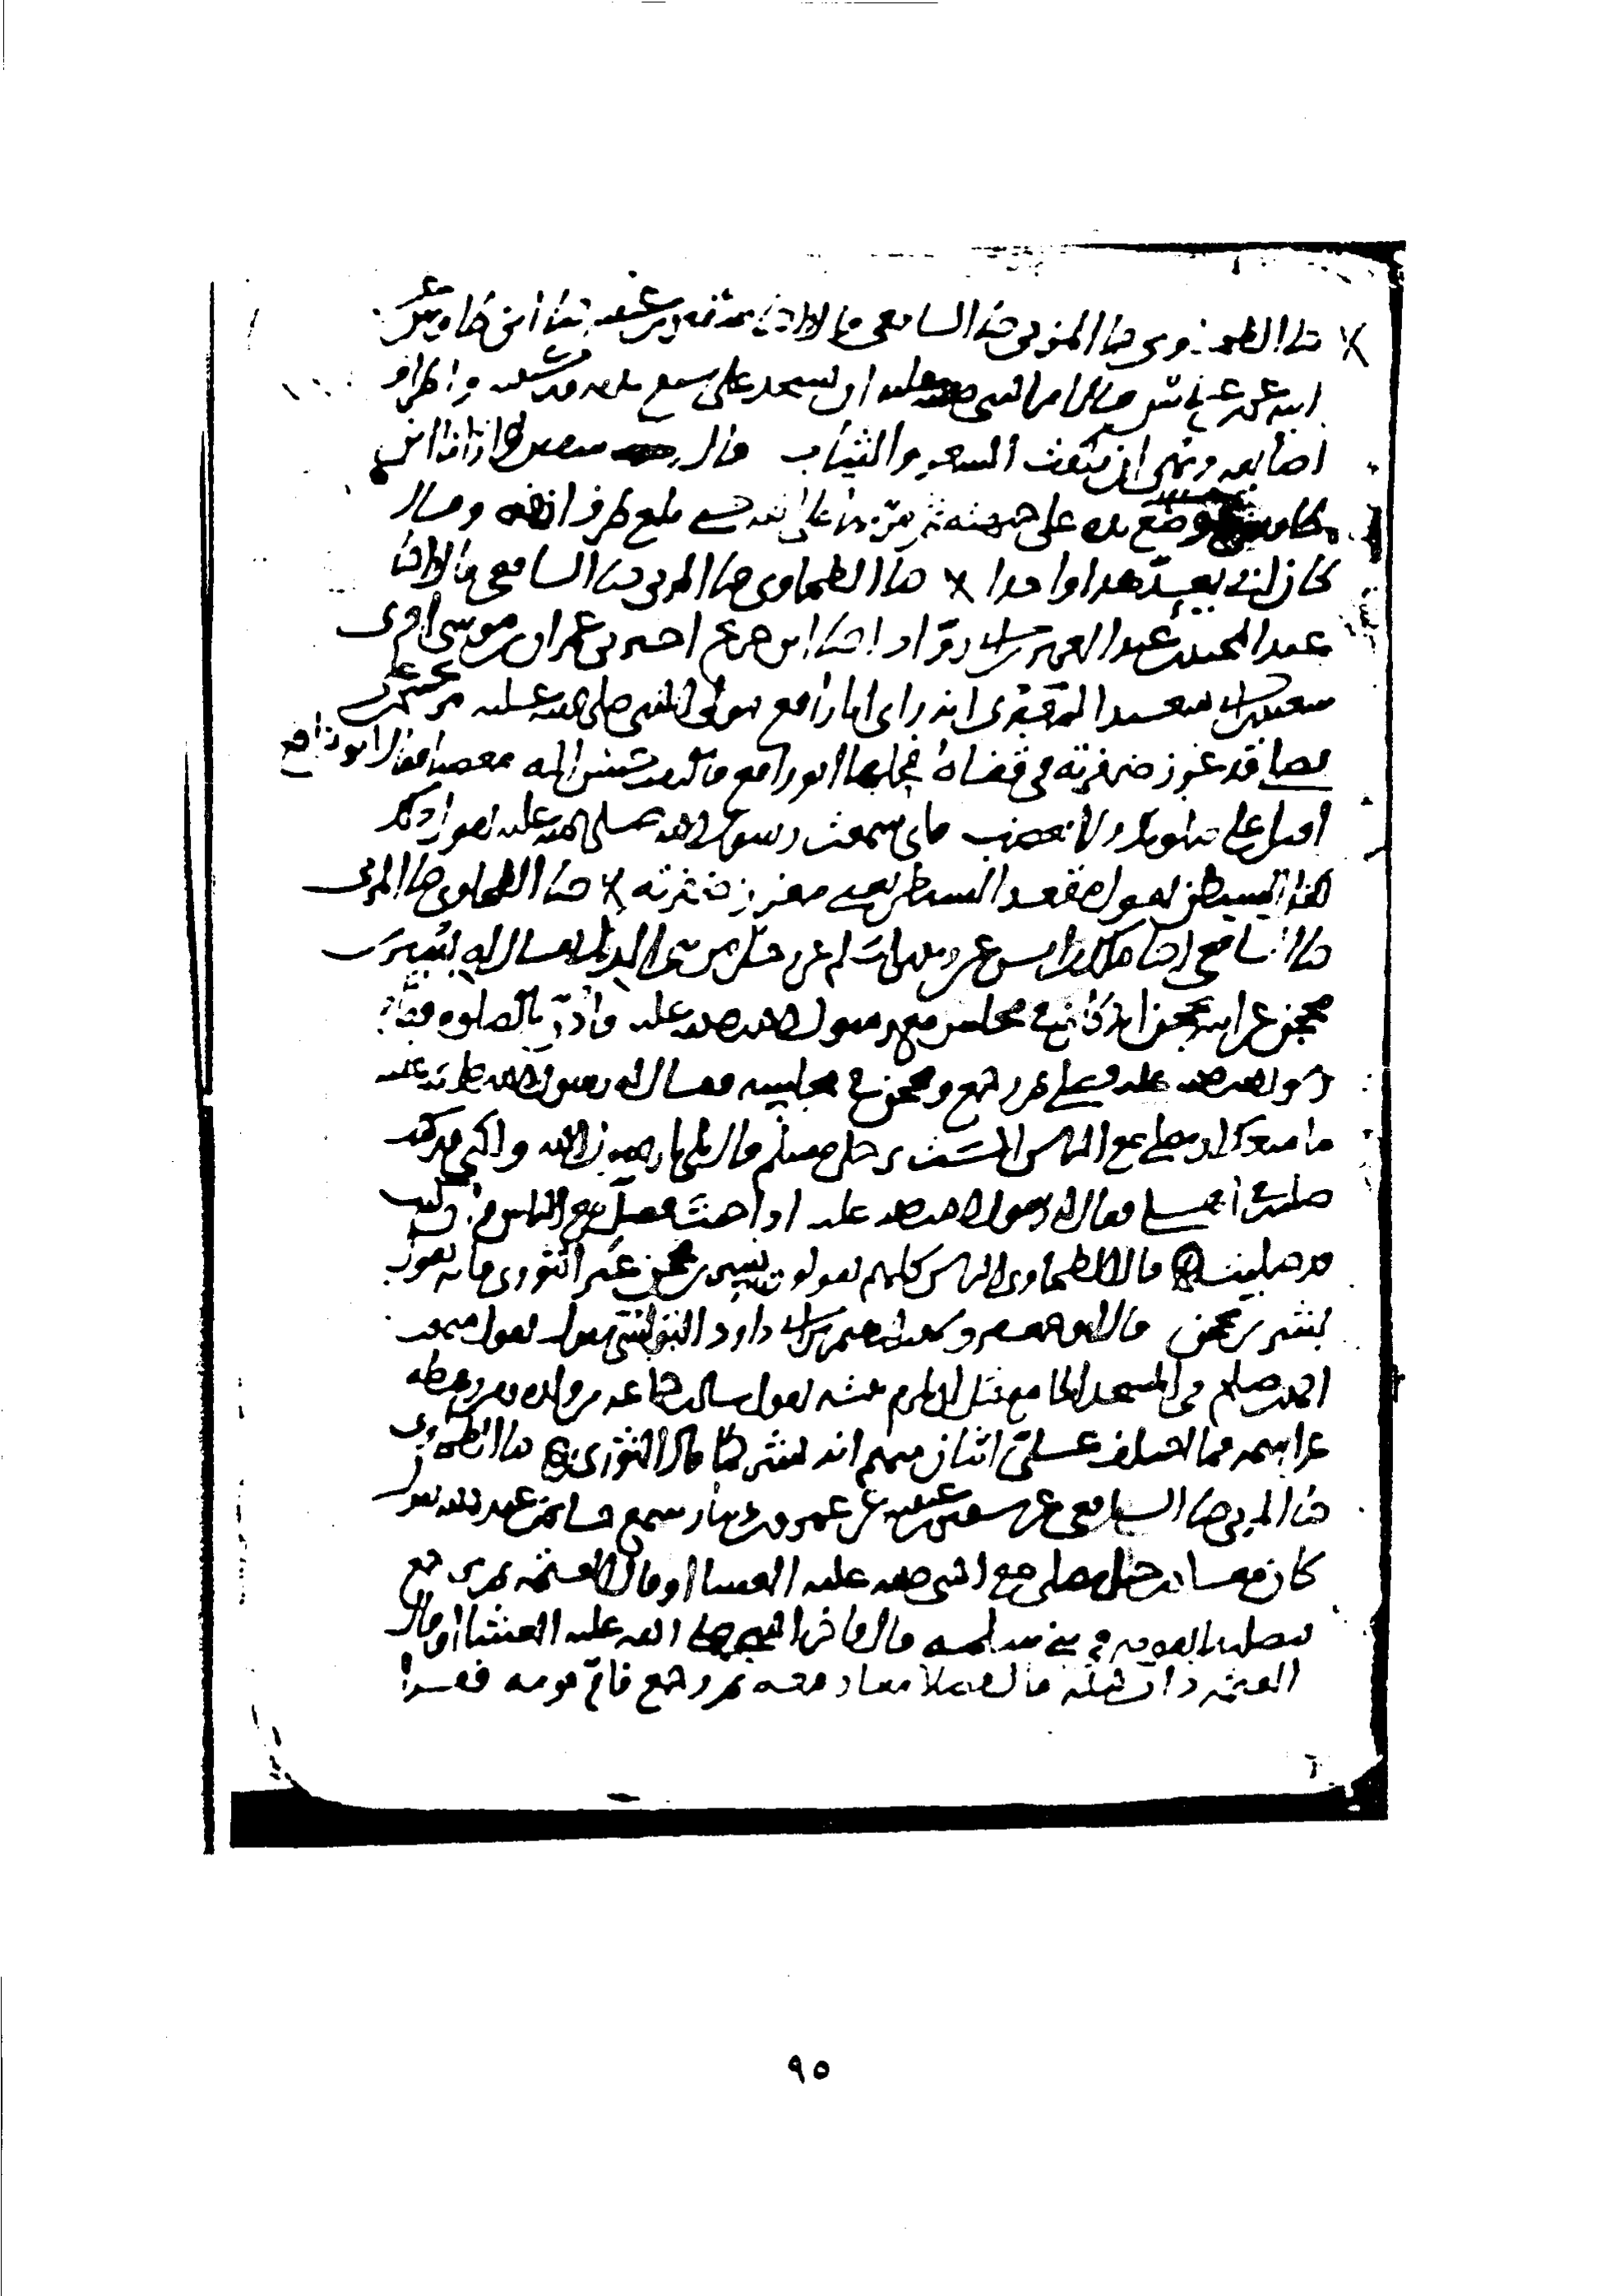 حدثنا الطحاوي حدثنا المزني حدثنا الشافعي قال اخبرنا سفين بن عيينه حدثنا ابن طاوس عن
ابيه عن ابن عباس قال امر النبي صلى الله عليه ان يسجد على سبع يديه وركبتيه واطراف
اصابعه ونهى ان يكفت الشعر والثياب قال سفين وزادنا ابن
طاوس فوضع يده على جبهته ثم مر بها على انفه حتى بلغ طرف انفه وقال
كان ابي يعد هذا واحدا حدثنا الطحاوي حدثنا المزني حدثنا الشافعي قال اخبرنا
عبد المجيد بن عبد العزيز بن ابي رواد اخبرنا ابن جريج اخبرني عمران بن موسى اخبرني
سعيد بن ابي سعيد المقبري انه راى ابا رافع مولى النبي صلى الله عليه مر بحسن بن علي
يصلي قد غرز ضفرته في قفاه فحلها ابو رافع فالتفت حسن اليه مغضبا فقال ابو رافع
اقبل على صلوتك ولا تغضب فاني سمعت رسول الله صلى الله عليه يقول ذلك
كفل الشيطن يقول مقعد الشيطن يعني مغرز ضفرته حدثنا الطحاوي حدثنا المزني
حدثنا الشافعي اخبرنا ملك بن انس عن زيد بن اسلم عن رجل من بني الديل يقال له بسر بن
محجن عن ابيه محجن انه كان في مجلس مع رسول الله صلى الله عليه فاذن بالصلوه فقام
رسول الله صلى الله عليه فصلى ثم رجع ومحجن في مجلسه فقال له رسول الله صلى الله عليه
ما منعك ان تصلي مع الناس الست برجل مسلم قال بلى يا رسول الله ولكني قد كنت
صليت في اهلي فقال له رسول الله صلى الله عليه اذا جئت فصل مع الناس وان كنت
قد صليت قال الطحاوي الناس كلهم يقولون بسر بن محجن غير الثوري فانه يقول
بشر بن محجن قال ابو جعفر وسمعت ابرهيم بن ابي داود البرلسي يقول سمعت
احمد بن صالح في المسجد الجامع يقول سالت جماعه من ولده ومن رهطه
عن اسمه فما اختلف علي اثنان منهم انه بشر كما قال الثوري حدثنا الطحاوي
حدثنا المزني حدثنا الشافعي عن سفين بن عيينه عن عمرو بن دينار سمع جابر بن عبد الله يقول
كان معاذ بن جبل يصلي مع النبي صلى الله عليه العشا او قال العتمه ثم يرجع
فيصليها بقومه في بني سلمه قال فاخر النبي صلى الله عليه العشا او قال
العتمه ذات ليله قال فصلا معاذ معه ثم رجع فام قومه فقرا
٩٥